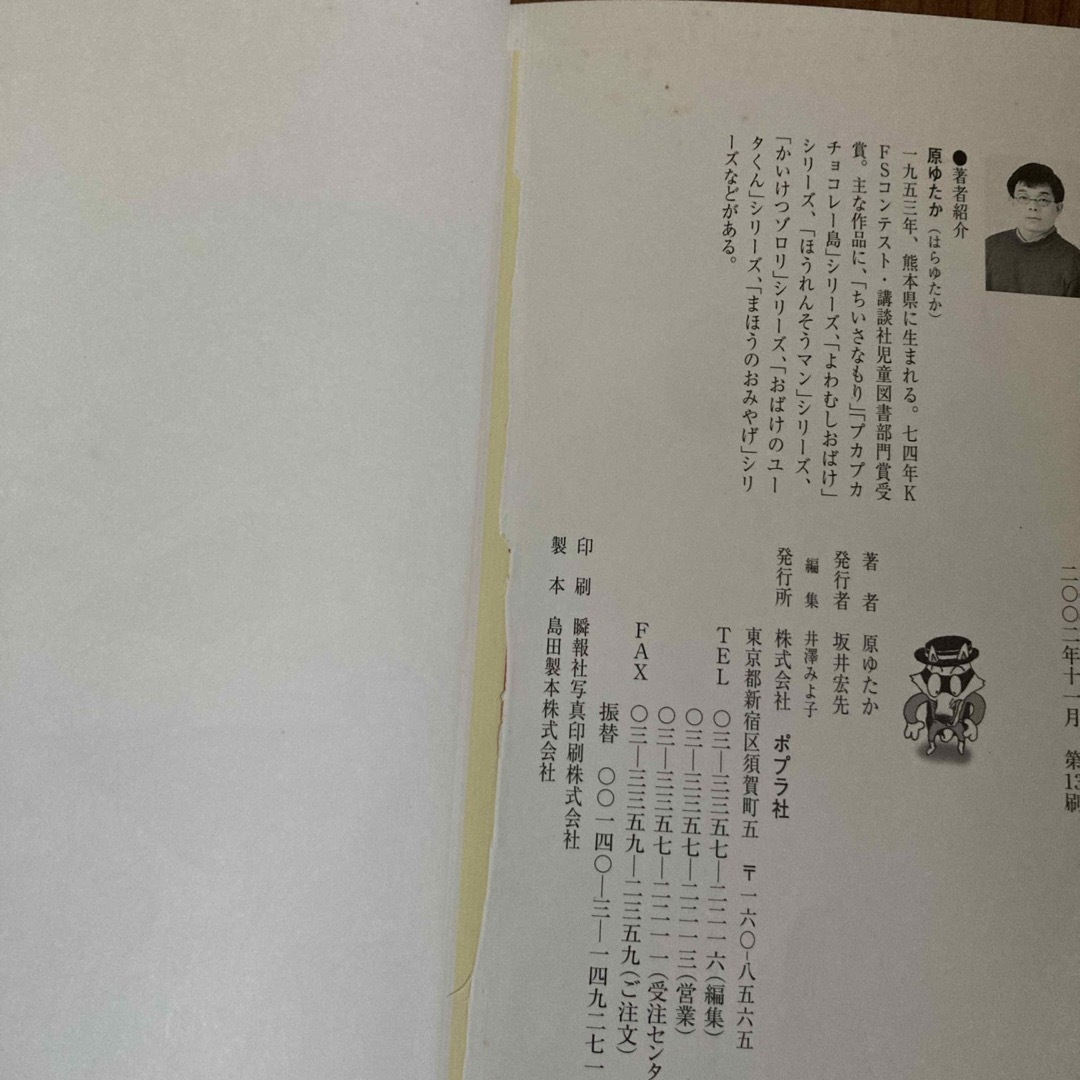 二〇〇二年十一月　第13刷
●著者紹介
原ゆたか（はらゆたか）
一九五三年、熊本県に生まれる。七四年K
FSコンテスト・講談社児童図書部門賞受
賞。主な作品に、「ちいさなもり」「プカプカ
チョコレー島」シリーズ、「よわむしおばけ」
シリーズ、「ほうれんそうマン」シリーズ、
「かいけつゾロリ」シリーズ、「おばけのユー
タくん」シリーズ、「まほうのおみやげ」シリ
ーズなどがある。
著　者　原ゆたか
発行者　坂井宏先
編　集　井澤みよ子
発行所　株式会社　ポプラ社
東京都新宿区須賀町五　〒一六〇-八五六五
TEL　〇三―三三五七―二二一六（編集）
〇三―三三五七―二二一三（営業）
〇三―三三五七―二二一一（受注センタ
FAX　〇三―三三五九―二三五九（ご注文）
振替　〇〇一四〇―三―一四九二七一
印　刷　瞬報社写真印刷株式会社
製　本　島田製本株式会社